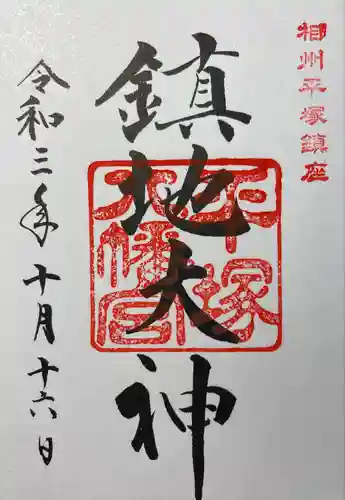 相州平塚鎮座
鎮地大神
平塚
八幡宮
令和三年十月十六日